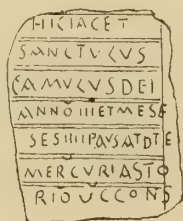 HICIACET
SANCTVCVS
CAMVCVSDEI
ANNOIIIETMESE
SESIIIIPAVSATDTE
MERCVRIASTO
RIOVCCONS